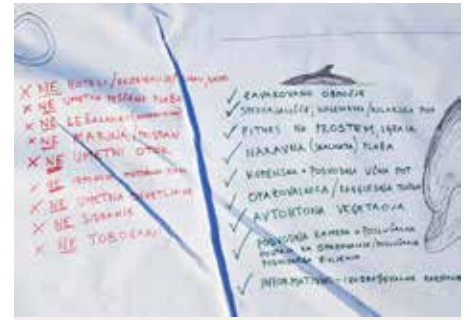 × NE HOTELI/
× NE UMETNA PEŠČENA PLAŽA
× NE LEŽALNICE/
× NE MARINA/PRISTAN
× NE UMETNI OTOK
× NE
× NE UMETNA OSVETLJAVA
× NE SIDRANJA
× NE TOBOGANI
✓ ZAVAROVANO OBMOČJE
✓ SPREHAJALIŠČE, / KOLESARSKA POT
✓ FITNES NA PROSTEM, IGRALA
✓ NARAVNA (SKALNATA) PLAŽA
✓ KOPENSKA + PODVODNA UČNA POT
✓ OPAZOVALNICA /
✓ AVTOHTONA VEGETACIJA
✓ PODVODNA KAMERA + POSLUŠALNA
POSTAJA ZA OPAZOVANJE/POSLUŠANJE
PODVODNEGA ŽIVLJENJA
✓ INFORMATIVNO-IZOBRAŽEVALNE